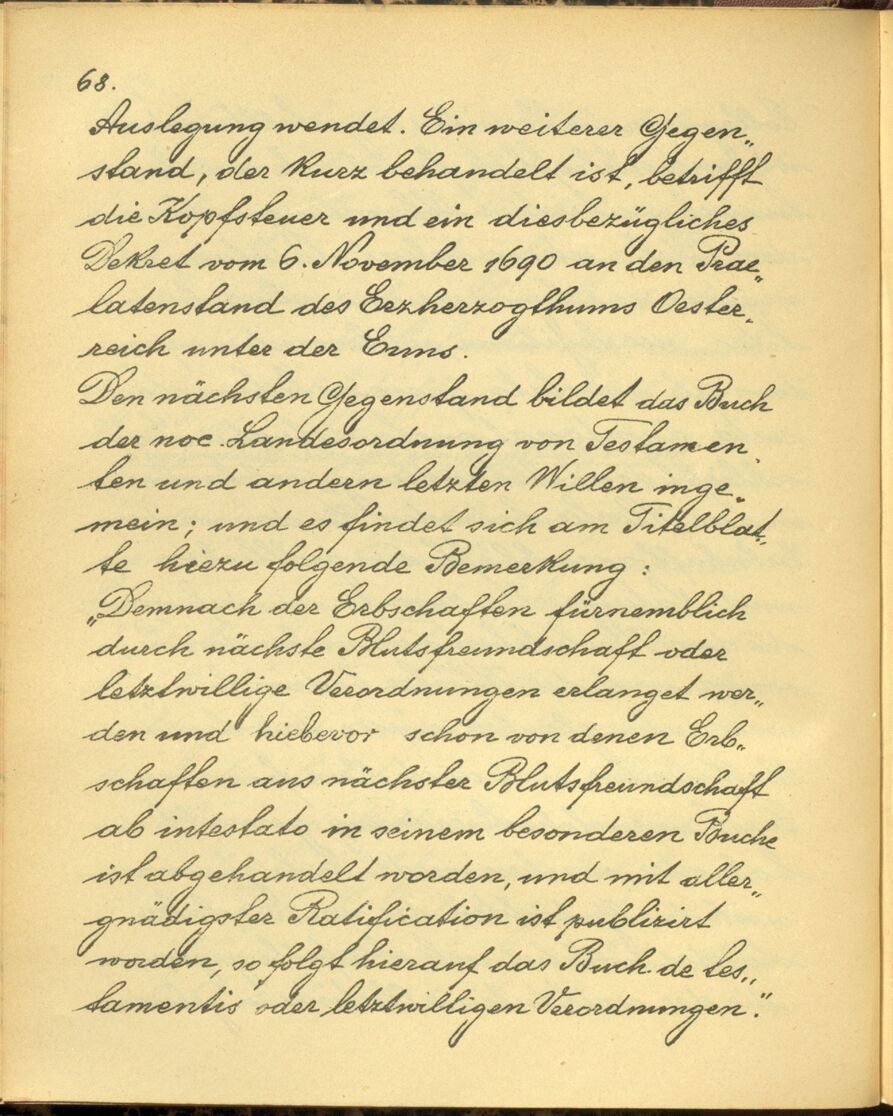 68.
Auslegung wendet. Ein weiterer Gegen„
stand, der kurz behandelt ist, betrifft
die Kopfsteuer und ein diesbezügliches
Dekret vom 6. November 1690 an den Prae„
latenstand des Erzherzogthums Oester„
reich unter der Enns.
Den nächsten Gegenstand bildet das Buch
der noe. Landesordnung von Testamen„
ten und andern letzten Willen inge„
mein; und es findet sich am Titelblat„
te hiezu folgende Bemerkung:
„Demnach der Erbschaften fürnemblich
durch nächste Blutsfreundschaft oder
letztwillige Verordnungen erlanget wer„
den und hiebevor schon von denen Erb„
schaften aus nächster Blutsfreundschaft
ab intestato in seinem besonderen Buche
ist abgehandelt worden, und mit aller„
gnädigster Ratification ist publizirt
worden, so folgt hierauf das Buch de tes„
tamentis oder letztwilligen Verordnungen."